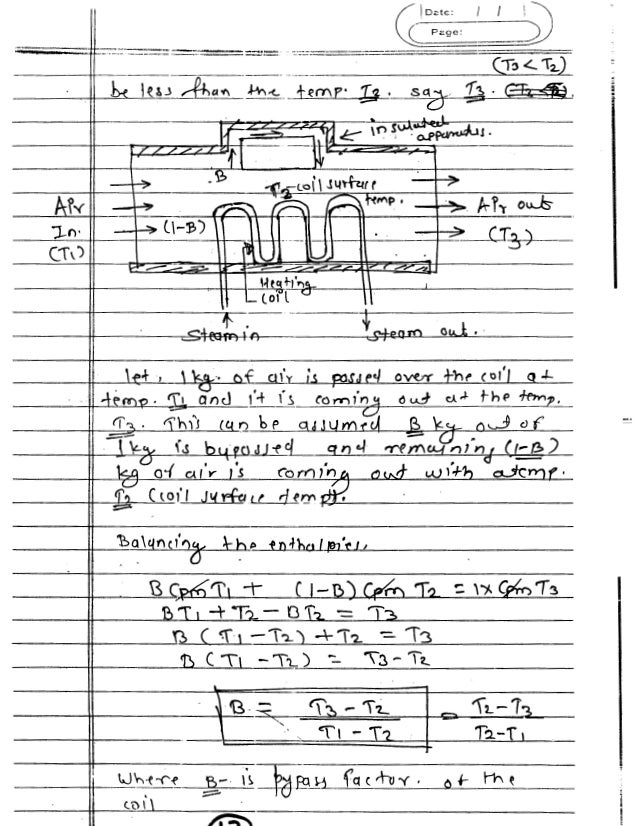 Date: / /
Page:
(T3 < T2)
be less than the temp. T2. say T3.
insulated
apparatus.
B
T2 - coil surface
temp.
Air
In.
(T1)
(1-B)
Air out
(T3)
Heating
coil
Steam in
steam out.
let, 1 kg. of air is passed over the coil at
temp. T1 and it is coming out at the temp.
T3. This can be assumed B kg out of
1 kg is bypassed and remaining (1-B)
kg of air is coming out with a temp.
T2 (coil surface temp).
Balancing the enthalpies,
B Cpm T1 + (1-B) Cpm T2 = 1 x Cpm T3
BT1 + T2 - BT2 = T3
B (T1 - T2) + T2 = T3
B (T1 - T2) = T3 - T2
B = T3 - T2 / T1 - T2 = T2 - T3 / T2 - T1
Where B - is bypass factor. of the
coil